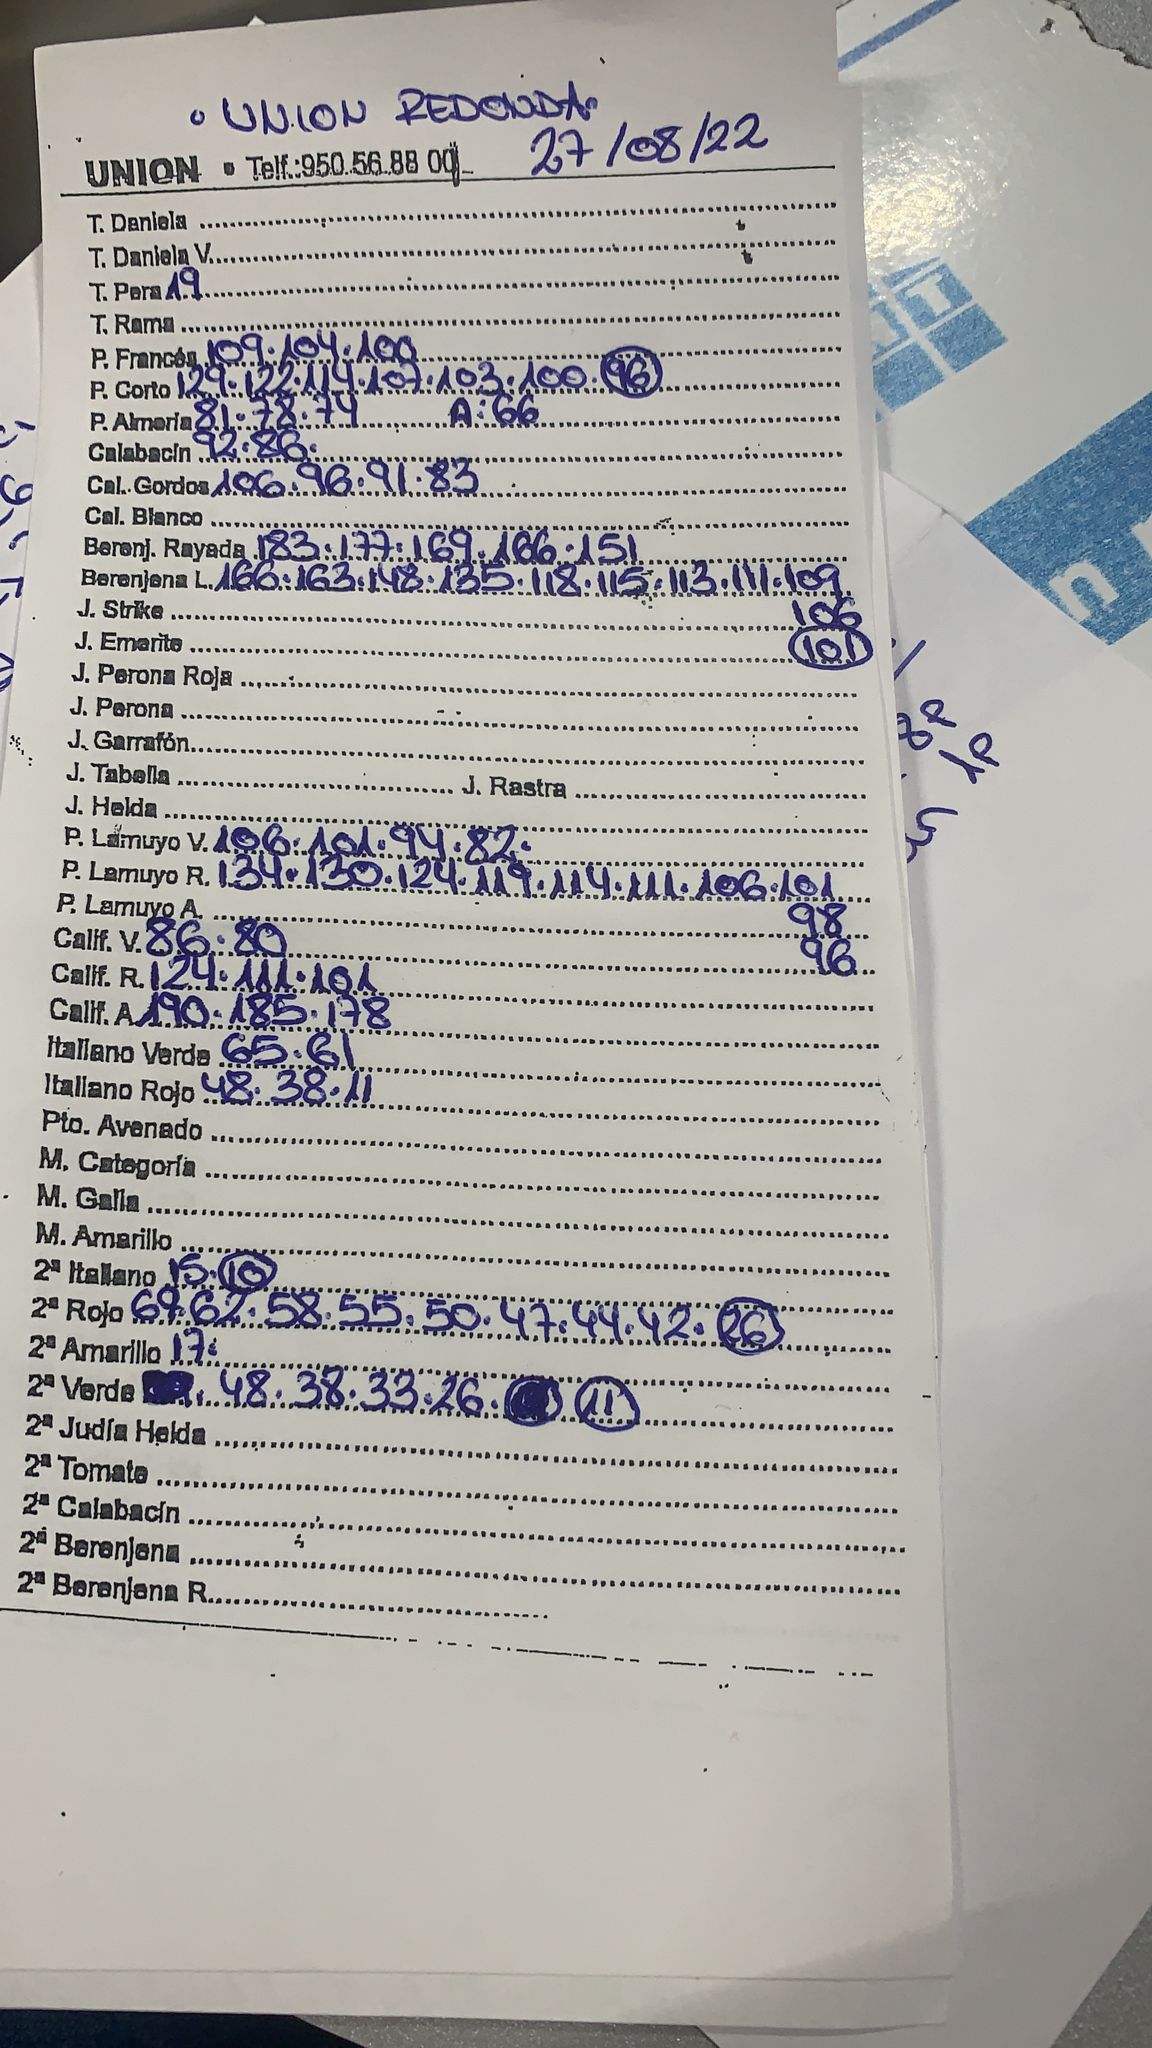 · UNION REDONDA·
27/08/22
UNION • Telf.:950.56.88 00
T. Daniela
T. Daniela V.
T. Pera 19
T. Rama
P. Francés 109·104·100
P. Corto 129·122·114·107·103·100·96
P. Almería 81·78·74 A:66
Calabacín 92·86·
Cal. Gordos 106·96·91·83
Cal. Blanco
Berenj. Rayada 183·177·169·166·151
Berenjena L. 166·163·148·135·118·115·113·111·109
J. Strike 106
J. Emerite 101
J. Perona Roja
J. Perona
J. Garrafón
J. Tabella J. Rastra
J. Helda
P. Lamuyo V. 106·101·94·82·
P. Lamuyo R. 134·130·124·119·114·111·106·101
P. Lamuyo A. 98
Calif. V. 86·80 96
Calif. R. 124·111·101
Calif. A 190·185·178
Italiano Verde 65·61
Italiano Rojo 48·38·11
Pto. Avenado
M. Categoría
M. Galia
M. Amarillo
2ª Italiano 15·10
2ª Rojo 69·62·58·55·50·47·44·42·26
2ª Amarillo 17·
2ª Verde 48·38·33·26· 11
2ª Judía Helda
2ª Tomate
2ª Calabacín
2ª Berenjena
2ª Berenjena R.